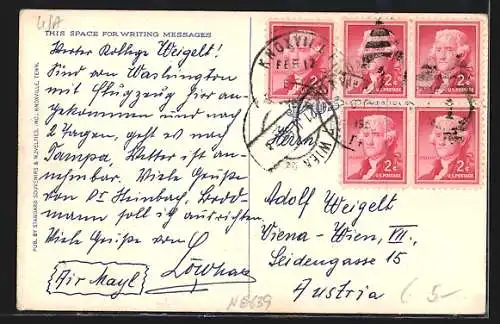 U/A
THIS SPACE FOR WRITING MESSAGES
Werter Kollege Weigelt!
Sind von Washington
mit Flugzeug hier an-
gekommen und nach
2 Tagen, geht es nach
Tampa, Wetter ist an-
nehmbar. Viele Grüße
von Dr. Steinbach, Brod-
mann soll ich ausrichten.
Viele Grüße vom
Air Mayl
PUB. BY STANDARD SOUVENIRS & NOVELTIES, INC., KNOXVILLE, TENN.
KNOXVILL
FEB 17
WIEN
2¢
U.S. POSTAGE
2¢
U.S. POSTAGE
2¢
U.S. POSTAGE
2¢
U.S. POSTAGE
Herrn
Adolf Weigelt
Viena - Wien, VII.,
Seidengasse 15
Austria
5-
NE639